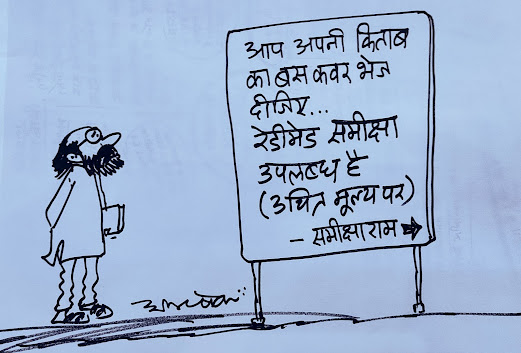 आप अपनी किताब
का बस कवर भेज
दीजिए...
रेडीमेड समीक्षा
उपलब्ध है
(उचित मूल्य पर)
- समीक्षाराम ➡